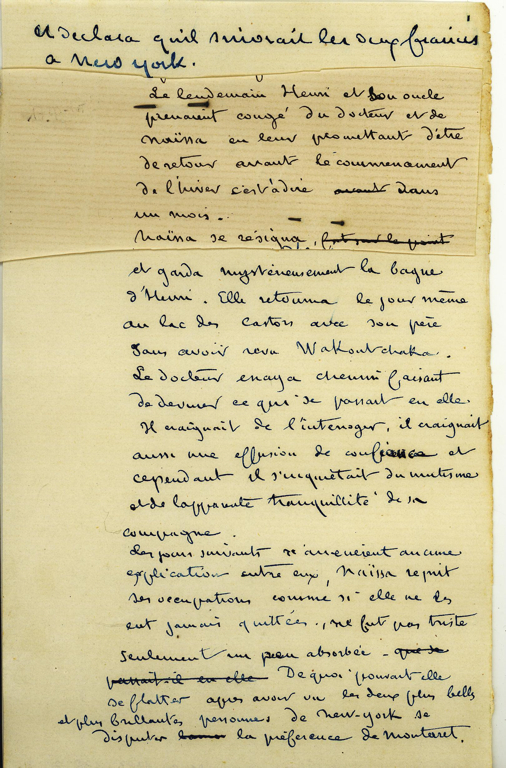 et declara qu'il suivrait les deux fiancés
a New york.
Le lendemain Henri et son oncle
prenaient congé du docteur et de
Naïssa en leur promettant d'être
de retour avant le commencement
de l'hiver c'est à dire avant dans
un mois.
Naïssa se résigna, fut sur le point
et garda mystérieusement la bague
d'Henri. Elle retourna le jour même
au lac des castors avec son père
sans avoir revu Wakontchaka.
Le docteur essaya chemin faisant
de deviner ce qui se passait en elle.
Il craignait de l'interroger, il craignait
aussi une effusion de confiance et
cependant il s'inquiétait du mutisme
et de l'apparente tranquillité de sa
compagne.
Les jours suivants n'amenèrent aucune
explication entre eux, Naïssa reprit
ses occupations comme si elle ne les
eut jamais quittées, ne fut pas triste
seulement un peu absorbée - que se
passait il en elle De quoi pouvait elle
se flatter apres avoir vu les deux plus belles
et plus brillantes personnes de New-york se
disputer la préférence de Montaret.